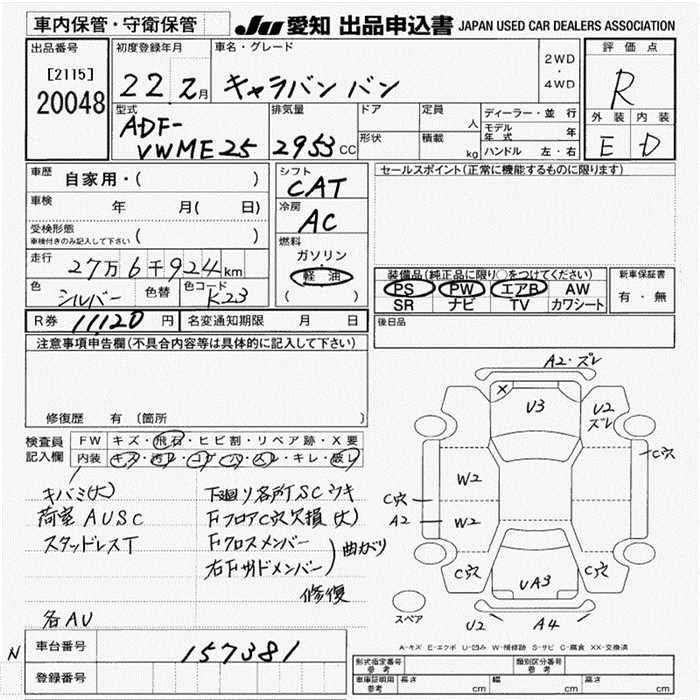 車内保管・守衛保管
JU 愛知 出品申込書 JAPAN USED CAR DEALERS ASSOCIATION
出品番号
[2115]
20048
初度登録年月
22 2月
車名・グレード
キャラバン バン
2WD
・
4WD
評価点
R
外装 内装
E D
型式
ADF-
VWME25
排気量
2953 CC
ドア
形状
定員
人
積載
kg
ディーラー・並行
モデル年式 年
ハンドル 左・右
車歴 自家用・( )
車検 年 月( 日)
受検形態
車検付きのみ記入して下さい ( )
走行 27万6千924km
色 シルバー 色替 色コード K23
シフト
CAT
冷房
AC
燃料
ガソリン
軽油
( )
セールスポイント(正常に機能するものに限ります)
装備品(純正品に限り○をつけてください)
PS PW エアB AW
SR ナビ TV カワシート
新車保証書
有・無
後日品
R券 11120 円 名変通知期限 月 日
注意事項申告欄(不具合内容等は具体的に記入して下さい)
修復歴 有 〔箇所 〕
検査員
記入欄
FW キズ・飛石・ヒビ割・リペア跡・X要
内装 キズ・汚レ・コゲ・穴・ムレ・キレ・破レ
キバミ(大)
荷室AUSC
スタッドレスT
各AU
下廻り各所SCサキ
FフロアC穴欠損(大)
Fクロスメンバー
右Fサイドメンバー
曲がり
修復
A2・ズレ
X
U3
U2
ズレ
C穴
W2
C穴
A2
W2
C穴
UA3
C穴
スペア
U2
A4
A-キズ E-エクボ U-凹み W-補修跡 S-サビ C-腐食 XX-交換済
N
車台番号 157381
登録番号
形式指定番号
参考
類別区分番号
参考
車庫証明用
参考
長さ cm 幅 cm 高さ cm